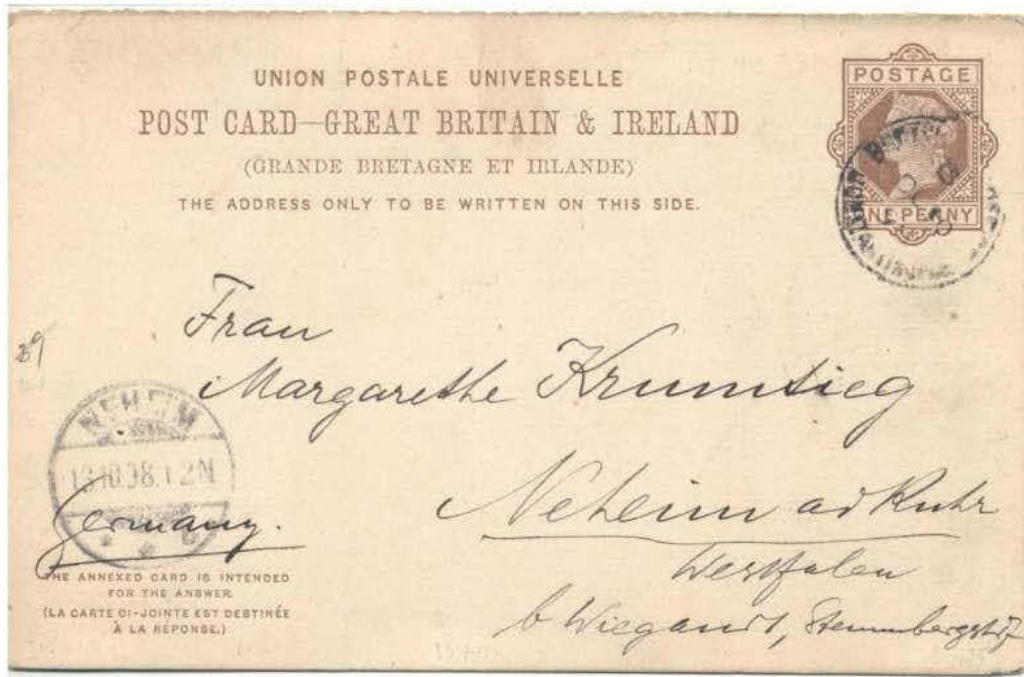 UNION POSTALE UNIVERSELLE
POST CARD—GREAT BRITAIN & IRELAND
(GRANDE BRETAGNE ET IRLANDE)
THE ADDRESS ONLY TO BE WRITTEN ON THIS SIDE.
POSTAGE
NE PENNY
Frau
Margarethe Krumtieg
29
NEHEIM
13.10.98.1.2N
Germany.
Neheim a/d Ruhr
Westfalen
b Wiegandt,
THE ANNEXED CARD IS INTENDED
FOR THE ANSWER.
(LA CARTE CI-JOINTE EST DESTINÉE
À LA RÉPONSE.)